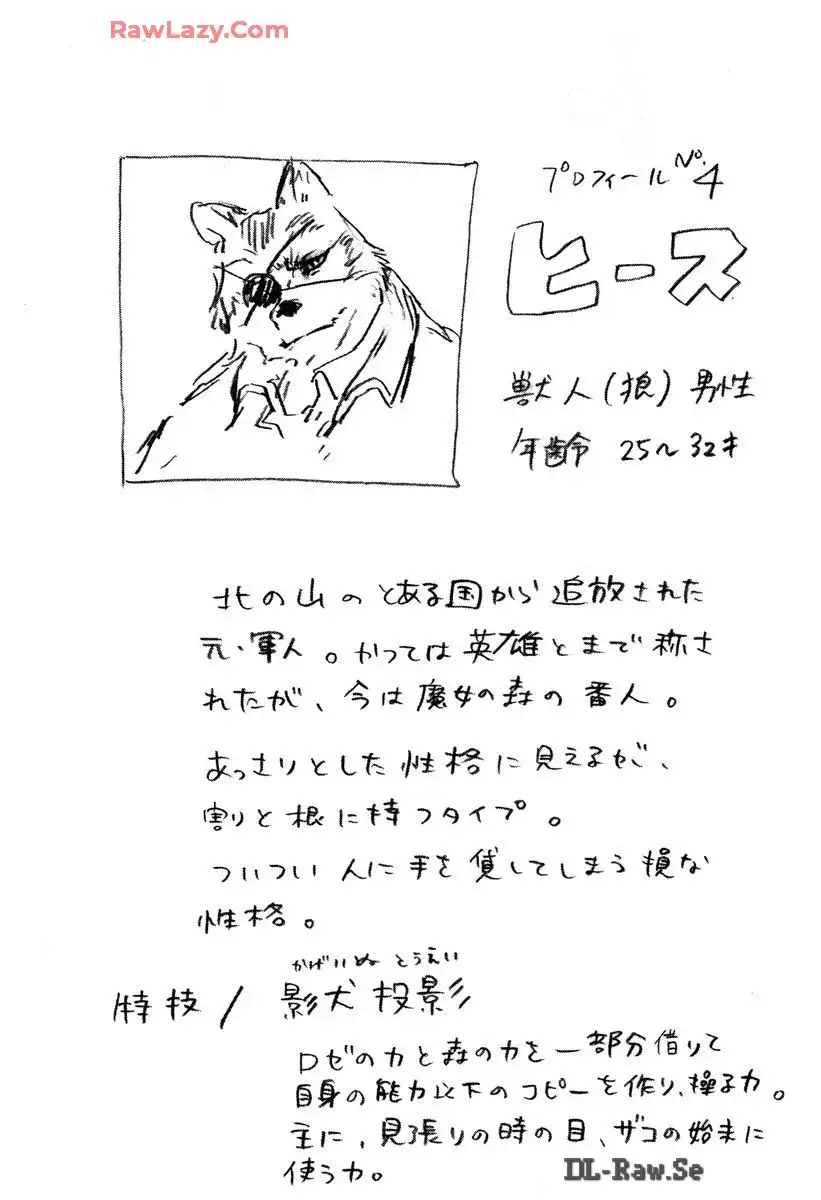 RawLazy.Com
プロフィール No.4
ヒース
獣人(狼)男性
年齢 25~32才
北の山のとある国から追放された
元・軍人。かつては英雄とまで称さ
れたが、今は魔女の森の番人。
あっさりとした性格に見えるが、
割りと根に持つタイプ。
ついつい人に手を貸してしまう損な
性格。
かげいぬ とうえい
特技/影犬投影
ロゼの力と森の力を一部分借りて
自身の能力以下のコピーを作り、操る力。
主に、見張りの時の目、ザコの始末に
使う力。
DL-Raw.Se